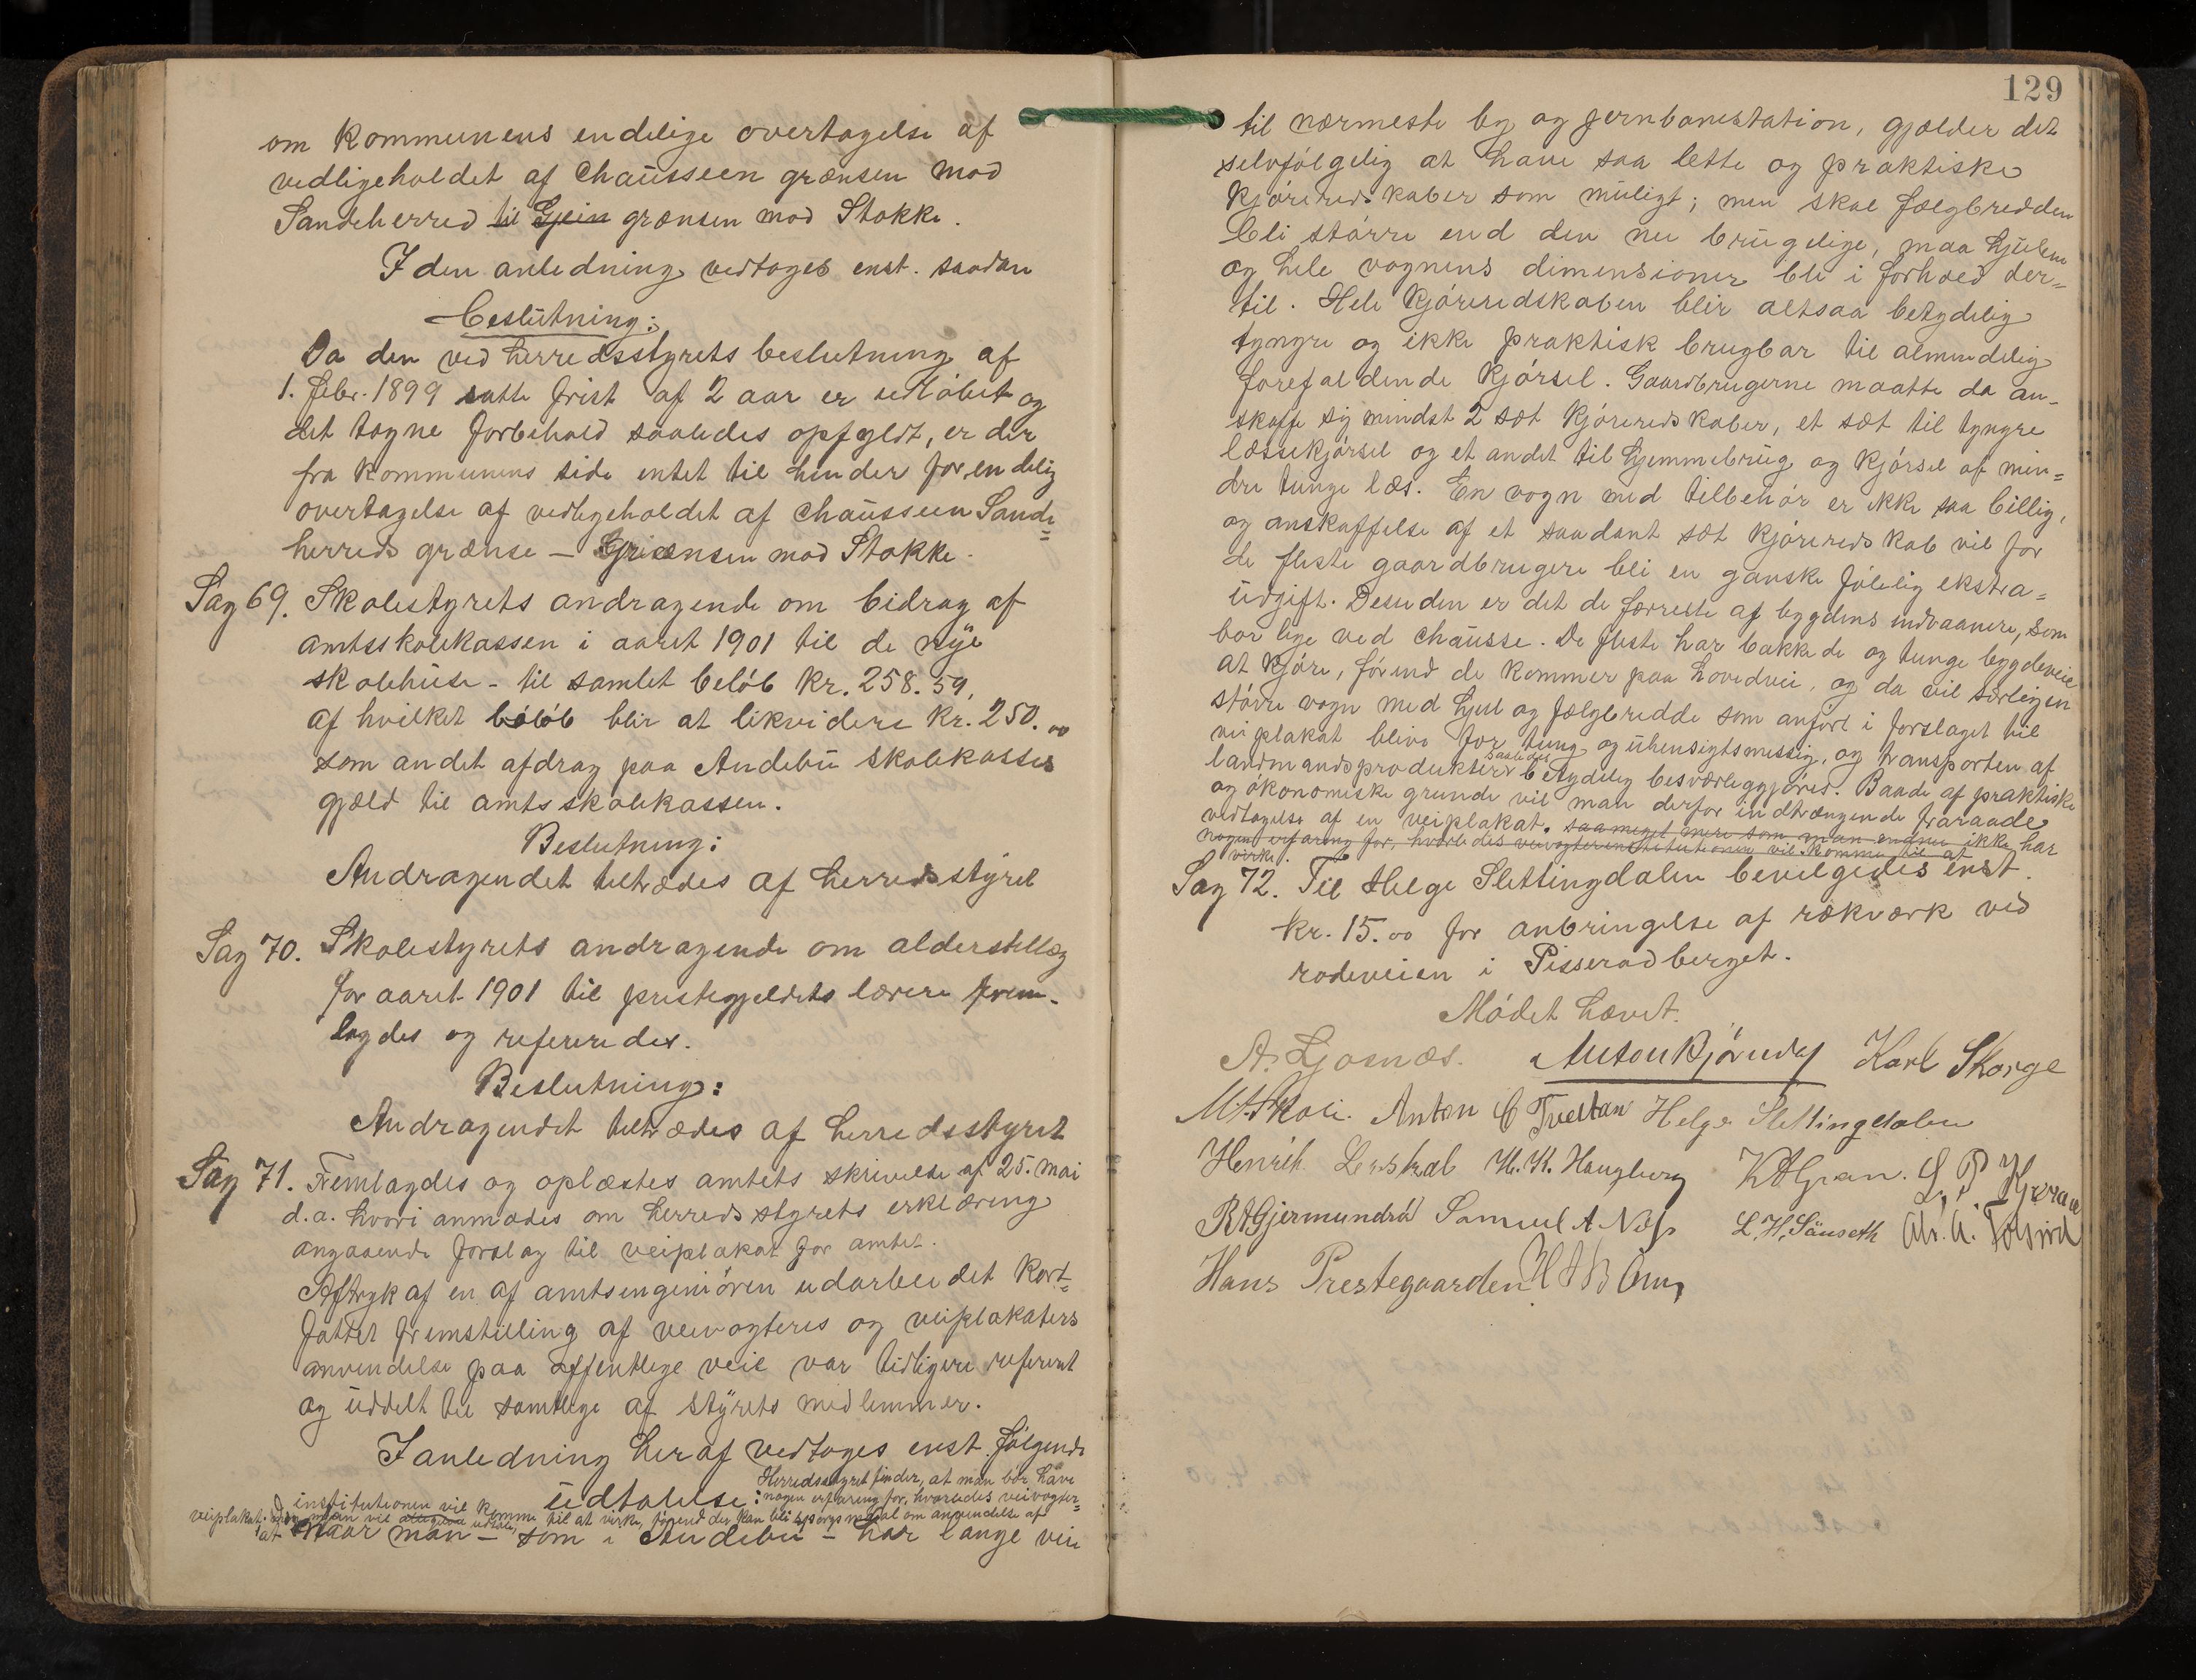 om kommunens endelige overtagelse af
vedligeholdet af chausseen grænsen mod
Sandeherred til Gjein grænsen mod Stokke.
I den anledning vedtoges enst. saadan
beslutning:
Da den ved herredsstyrets beslutning af
1. febr. 1899 satte frist af 2 aar er udløbet og
det tagne forbehold saaledes opfyldt, er der
fra kommunens side intet til hinder for endelig
overtagelse af vedligeholdet af chausseen Sande=
herreds grænse – Grænsen mod Stokke.
Sag 69. Skolestyrets andragende om bidrag af
amtsskolekassen i aaret 1901 til de nye
skolehuse - til samlet beløb kr. 258.59,
af hvilket beløb blir at likvidere kr. 250.00
som andet afdrag paa Andebu skolekasses
gjæld til amtsskolekassen.
Beslutning:
Andragendet tiltrædes af herredsstyret
Sag 70. Skolestyrets andragende om alderstillæg
for aaret 1901 til prestegjeldets lærere frem-
lagdes og refereredes.
Beslutning:
Andragendet tiltrædes af herredsstyret
Sag 71. Fremlagdes og oplæstes amtets skrivelse af 25. mai
d.a. hvori anmodes om herredsstyrets erklæring
angaaende forslag til veiplakat for amtet.
Aftryk af en af amtsingeniøren udarbeidet kort=
fattet fremstilling af veivogteres og veiplakaters
anvendelse paa offentlige veie var tidligere referert
og uddelt til samtlige af styrets medlemmer.
I anledning heraf vedtoges enst. følgende
udtalelse: Herredsstyret finder, at man bør have
nogen erfaring for, hvorledes veivogter=
institutionen vil komme til at virke, førend der kan bli spørgsmaal om anvendelse af
veiplakat; man vil udtale,
at naar man – som i Andebu – har lange veie
129
til nærmeste by og jernbanestation, gjælder det
selvfølgelig at have saa lette og praktiske
kjøreredskaber som muligt; men skal fælgbredden
bli større end den nu brugelige, maa hjulene
og hele vognens dimensioner bli i forhold der=
til. Hele kjøreredskaben blir altsaa betydelig
tyngre og ikke praktisk brugbar til almindelig
forefaldende kjørsel. Gaardbrugerne maatte da an-
skaffe sig mindst 2 sæt kjøreredskaber, et sæt til tyngre
læssekjørsel og et andet til hjemmebrug og kjørsel af min=
dre tunge læs. En vogn med tilbehør er ikke saa billig,
og anskaffelse af et saadant sæt kjøreredskab vil for
de fleste gaardbrugere bli en ganske følelig ekstra=
udgift. Desuden er det de færreste af bygdens indvaanere, som
bor lige ved chausse. De fleste har bakkede og tunge bygdeveie
at kjøre, førend de kommer paa hovedvei, og da vil særligen
større vogn med hjul og fælgbredde som anført i forslaget til
veiplakat blive for tung og uhensigtsmessig, og transporten af
landmandsprodukter saaledes betydelig besværliggjøred. Baade af praktiske
og økonomiske grunde vil man derfor indtrængende fraraade
vedtagelse af en veiplakat. saa meget mere som man endnu ikke har
nogen erfaring for, hvorledes veivogterinstitutionen vil komme til at
virke.
Sag 72. Til Helge Slettingdalen bevilgedes enst.
kr. 15.00 for anbringelse af rækværk ved
rodeveien i Pisserødberget.
Mødet hævet.
A. Ljosnæs. Anton Karl Skorge
Anton C Tveitan Helge Slettingdalen
Henrik H. K. Haugberg K A Gran. L. P.
R A Gjermundrød Samuel A L. H. Sånseth
Hans Prestegaarden